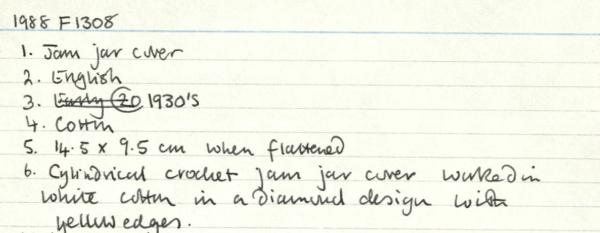 1988 F1308
1. Jam jar cover
2. English
3. Early 20 1930's
4. Cotton
5. 14.5 x 9.5 cm when flattened
6. Cylindrical crochet jam jar cover worked in
white cotton in a diamond design with
yellow edges.